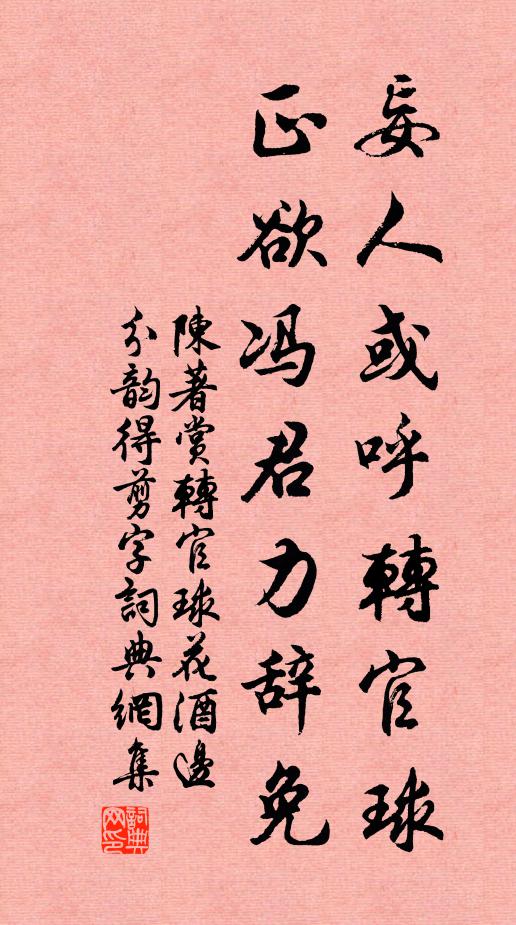 妄人或呼轉官球
正欲冯君力辞免
陳著賞轉官球花酒邊
分韵得剪字詞典網集
詞典网印